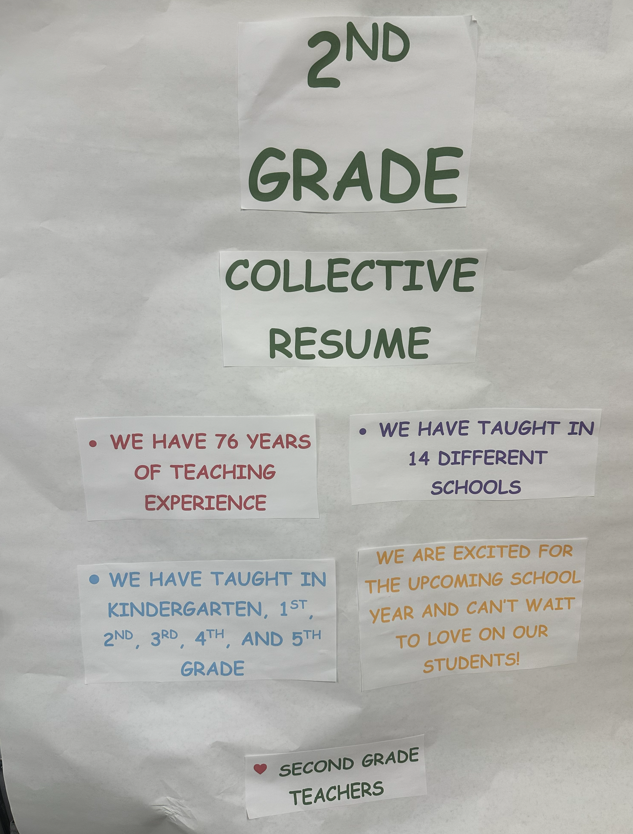 2ND
GRADE
COLLECTIVE
RESUME
• WE HAVE 76 YEARS
OF TEACHING
EXPERIENCE
• WE HAVE TAUGHT IN
14 DIFFERENT
SCHOOLS
• WE HAVE TAUGHT IN
KINDERGARTEN, 1ST,
2ND, 3RD, 4TH, AND 5TH
GRADE
WE ARE EXCITED FOR
THE UPCOMING SCHOOL
YEAR AND CAN'T WAIT
TO LOVE ON OUR
STUDENTS!
♥ SECOND GRADE
TEACHERS